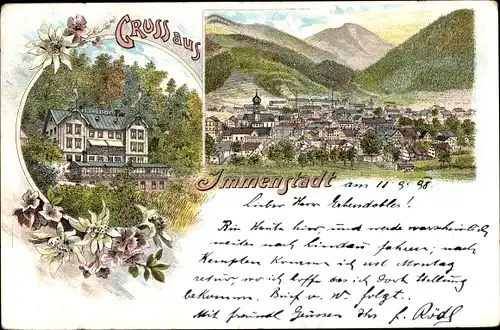 Gruss aus
Immenstadt am 11.9.98.
Lieber Herr
Bin heute hier, und werde wahrscheinlich
weiter nach Lindau fahren, nach
Kempten komme ich erst Montag
retur, wo ich hoffe das ich dort Stellung
bekomme. Brief v. W. folgt.
Mit freundl Grüssen Ihr f. Rödl